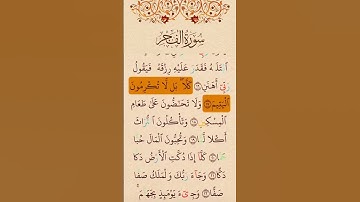 سُورَةُ الفَجْرِ
ٱبْتَلَىٰهُ فَقَدَرَ عَلَيْهِ رِزْقَهُۥ فَيَقُولُ
رَبِّىٓ أَهَٰنَنِ ۝١٦ كَلَّا ۖ بَل لَّا تُكْرِمُونَ
ٱلْيَتِيمَ ۝١٧ وَلَا تَحَٰٓضُّونَ عَلَىٰ طَعَامِ
ٱلْمِسْكِينِ ۝١٨ وَتَأْكُلُونَ ٱلتُّرَاثَ
أَكْلًا لَّمًّا ۝١٩ وَتُحِبُّونَ ٱلْمَالَ حُبًّا
جَمًّا ۝٢٠ كَلَّآ إِذَا دُكَّتِ ٱلْأَرْضُ دَكًّا
دَكًّا ۝٢١ وَجَآءَ رَبُّكَ وَٱلْمَلَكُ صَفًّا
صَفًّا ۝٢٢ وَجِا۟ىٓءَ يَوْمَئِذٍۭ بِجَهَنَّمَ ۚ